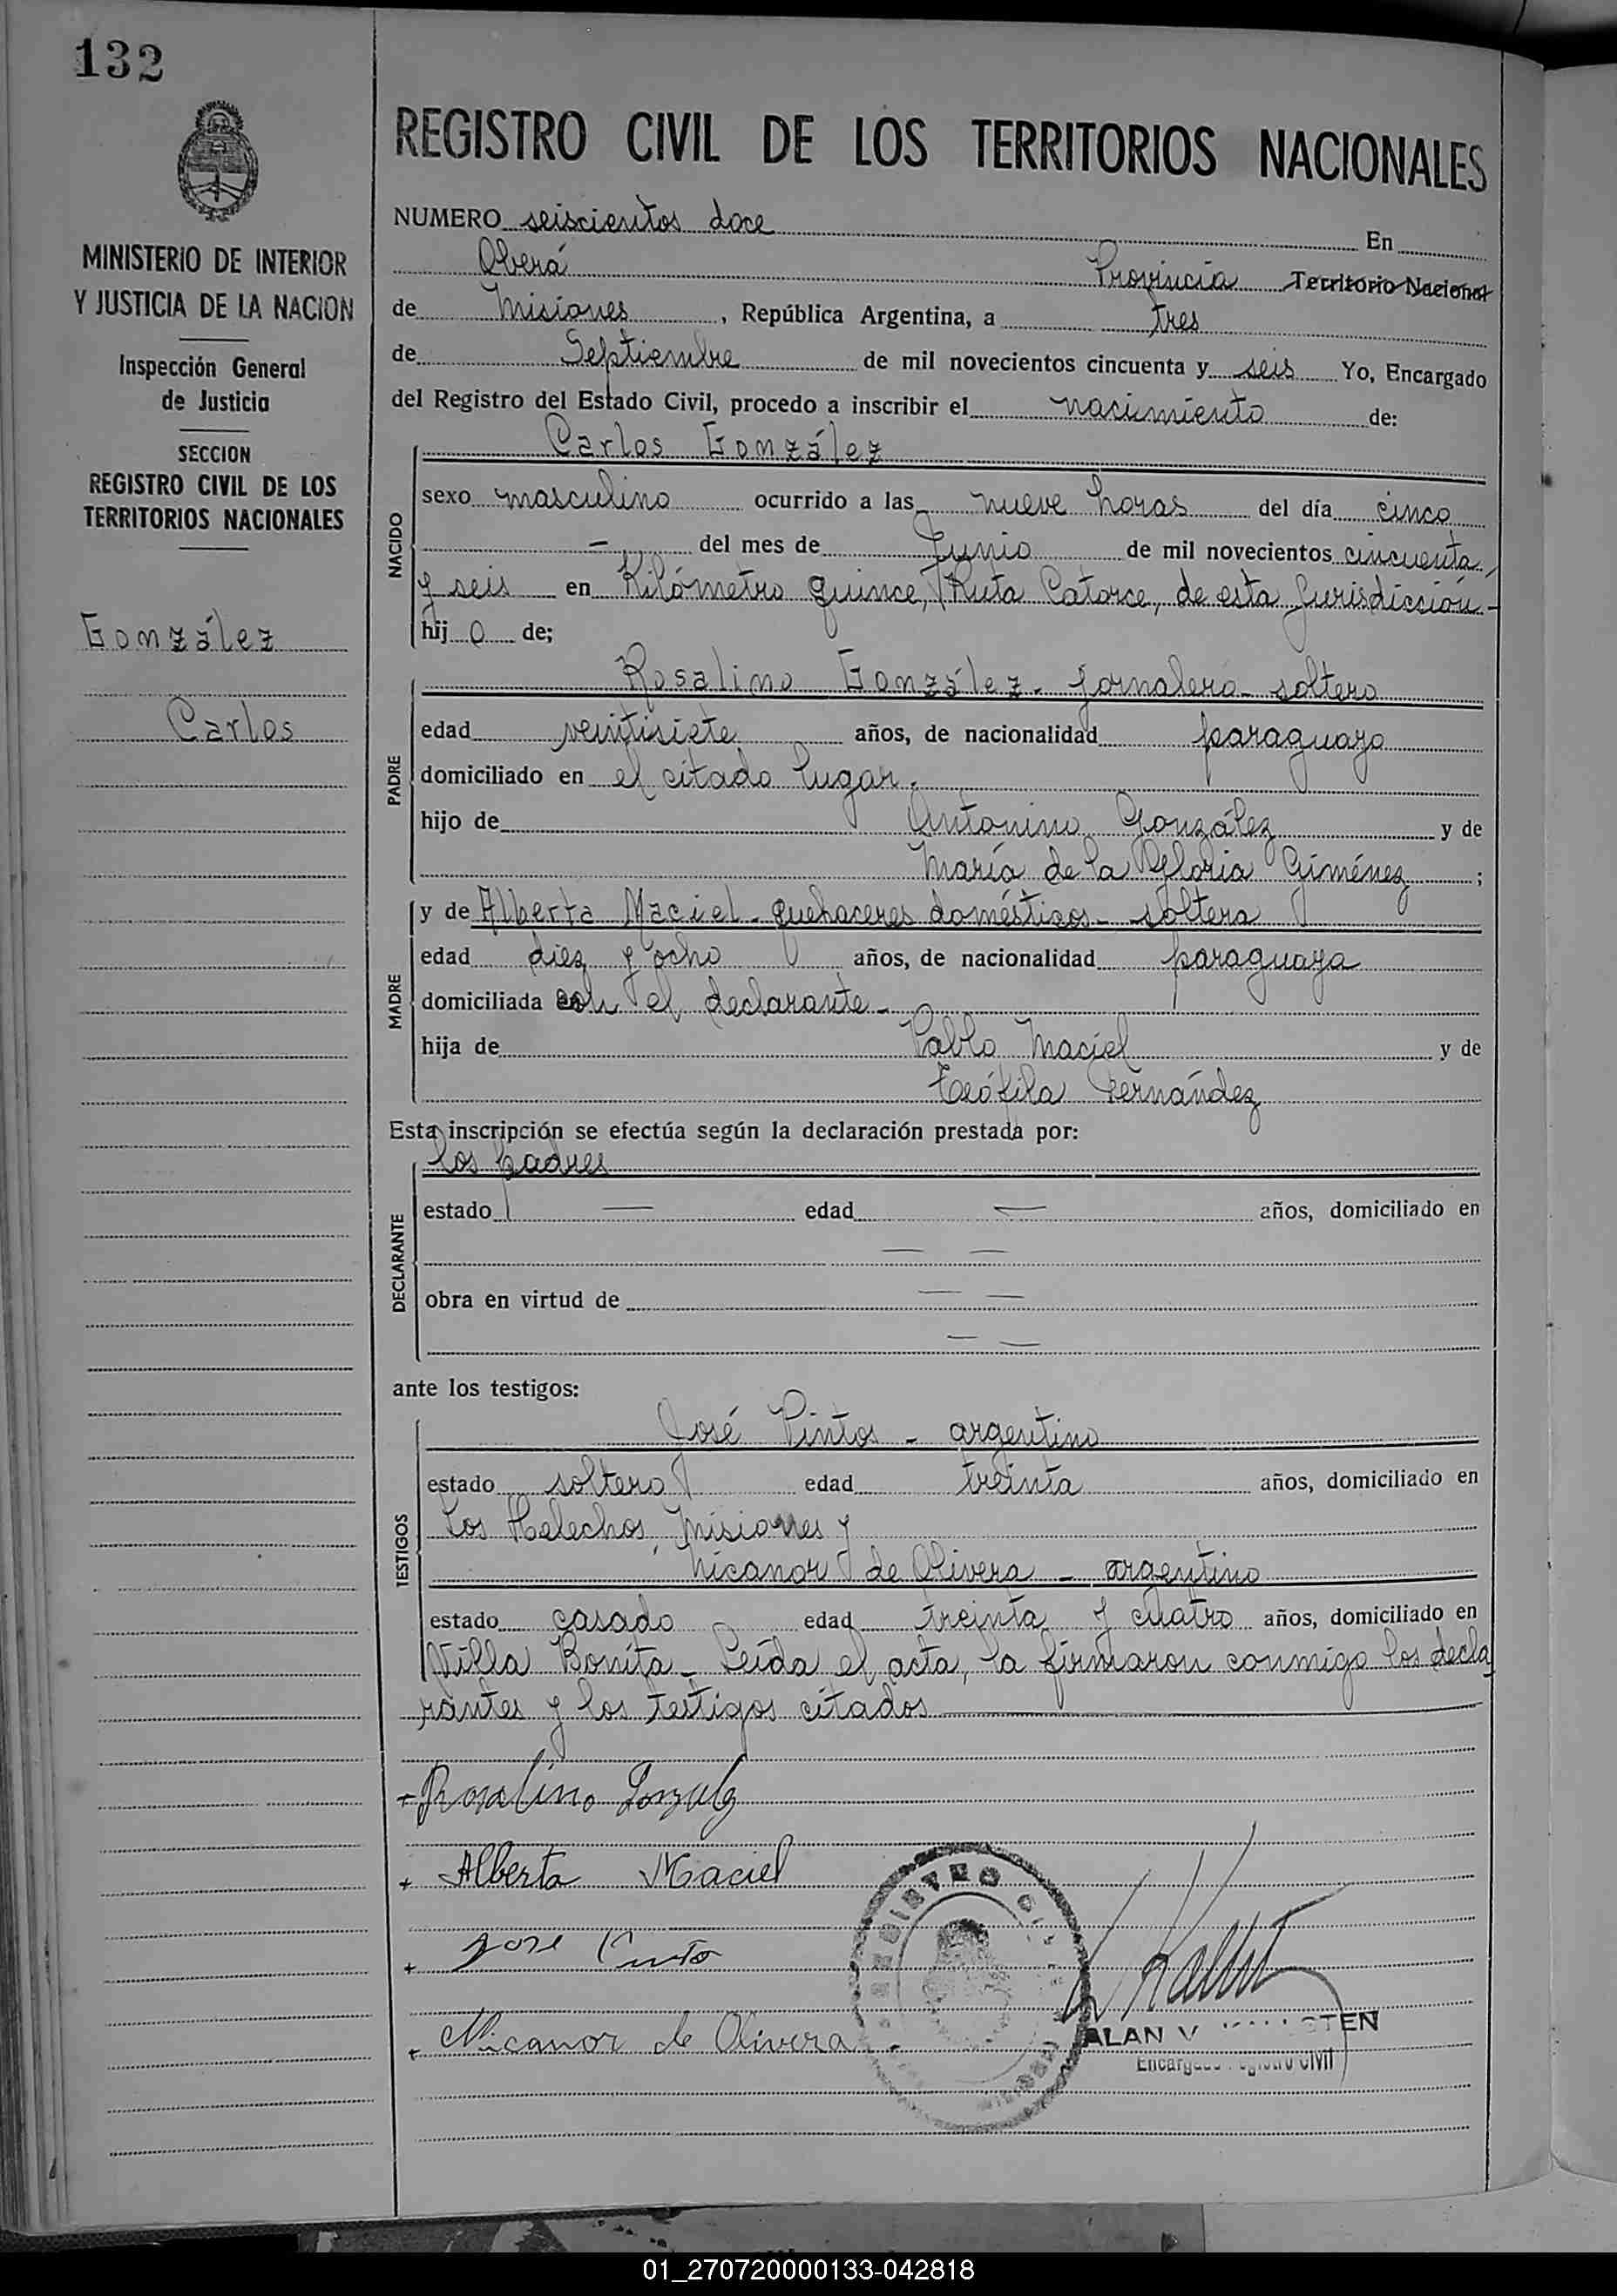 132
MINISTERIO DE INTERIOR
Y JUSTICIA DE LA NACION
Inspección General
de Justicia
SECCION
REGISTRO CIVIL DE LOS
TERRITORIOS NACIONALES
González
Carlos
REGISTRO CIVIL DE LOS TERRITORIOS NACIONALES
NUMERO seiscientos doce En
Oberá Provincia Territorio Nacional
de Misiones, República Argentina, a tres
de Septiembre de mil novecientos cincuenta y seis Yo, Encargado
del Registro del Estado Civil, procedo a inscribir el nacimiento de:
Carlos González
NACIDO
sexo masculino ocurrido a las nueve horas del día cinco
- del mes de Junio de mil novecientos cincuenta
y seis en Kilómetro quince, Ruta Catorce, de esta Jurisdicción-
hij o de;
PADRE
Rosalino González - jornalero - soltero
edad veintisiete años, de nacionalidad paraguayo
domiciliado en el citado lugar.
hijo de Antonino González y de
María de la Gloria Giménez ;
MADRE
y de Alberta Maciel - quehaceres domésticos - soltera
edad diez y ocho años, de nacionalidad paraguaya
domiciliada con el declarante -
hija de Pablo Maciel y de
Teófila Fernández
Esta inscripción se efectúa según la declaración prestada por:
DECLARANTE
los padres
estado — edad — años, domiciliado en
— —
obra en virtud de — —
— —
ante los testigos:
TESTIGOS
José Pintos - argentino
estado soltero edad treinta años, domiciliado en
Los Helechos, Misiones y
Nicanor de Olivera - argentino
estado casado edad treinta y cuatro años, domiciliado en
Villa Bonita - Leída el acta, la firmaron conmigo los decla
rantes y los testigos citados
+ Rosalino Gonzalez
+ Alberta Maciel
+ Jose Pinto
+ Nicanor de Olivera
REGISTRO
ALAN V
Encargado Registro Civil
01_270720000133-042818